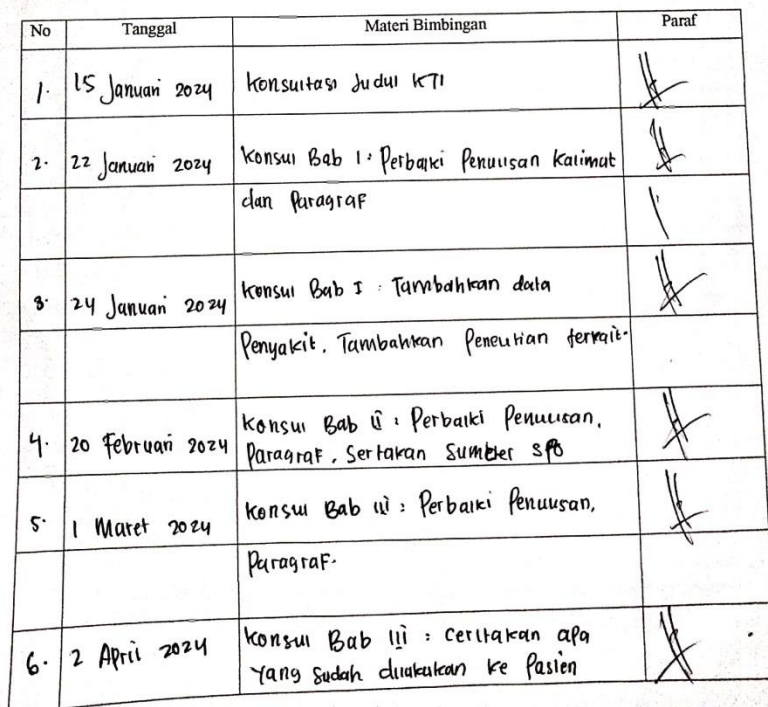 No Tanggal Materi Bimbingan Paraf
1. 15 Januari 2024 Konsultasi Judul KTI
2. 22 Januari 2024 Konsul Bab 1 : Perbaiki Penulisan Kalimat
dan Paragraf
3. 24 Januari 2024 Konsul Bab I : Tambahkan data
Penyakit. Tambahkan Penelitian terkait.
4. 20 Februari 2024 Konsul Bab ii : Perbaiki Penulisan,
Paragraf, Sertakan Sumber SPO
5. 1 Maret 2024 Konsul Bab iii : Perbaiki Penulisan,
Paragraf.
6. 2 April 2024 Konsul Bab iii : Ceritakan apa
Yang Sudah dilakukan ke Pasien